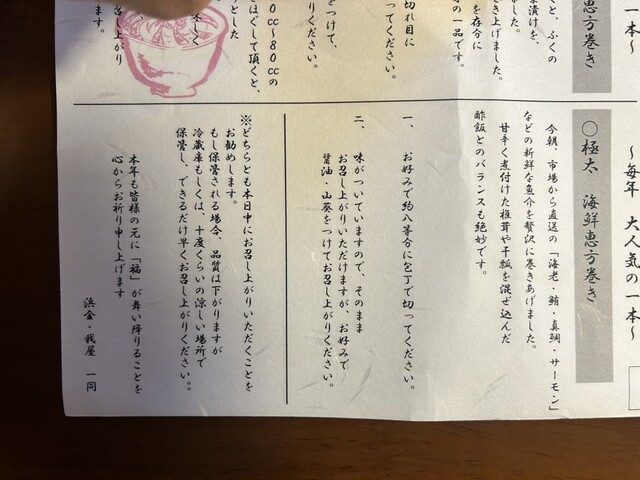 一本〜
恵方巻き
くと、ふくの
漬けを、
ました。
き上げました。
を存分に
の一品です。
切れ目に
ってください。
をつけて、
りください。
0cc〜80ccの
ほぐして頂くと、
とした
しく
召し上がり
ます。
〜毎年 大人気の一本〜
○極太 海鮮恵方巻き
今朝、市場から直送の「海老・鮪・真鯛・サーモン」
などの新鮮な魚介を贅沢に巻きあげました。
甘辛く煮付けた椎茸や干瓢を混ぜ込んだ
酢飯とのバランスも絶妙です。
一、 お好みで約八等分に包丁で切ってください。
二、 味がついていますので、そのまま
お召し上がりいただけますが、お好みで
醤油・山葵をつけてお召し上がりください。
※どちらとも本日中にお召し上がりいただくことを
お勧めします。
もし保管される場合、品質は下がりますが
冷蔵庫もしくは、十度くらいの涼しい場所で
保管し、できるだけ早くお召し上がりください。。
本年も皆様の元に「福」が舞い降りることを
心からお祈り申し上げます
浜金・我屋 一同